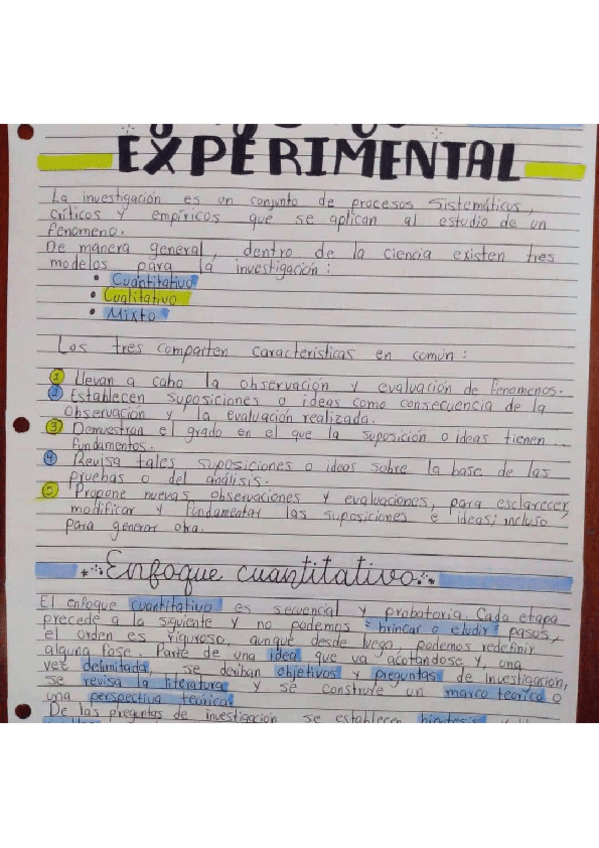 EXPERIMENTAL
La investigación es un conjunto de procesos sistemáticos,
críticos y empíricos que se aplican al estudio de un
fenomeno.
De manera general, dentro de la ciencia existen tres
modelos para la investigación:
• Cuantitativo
• Cualitativo
• Mixto
Los tres comparten caracteristicas en común:
1 Llevan a cabo la observación y evaluación de fenomenos.
2 Establecen suposiciones o ideas como consecuencia de la
observación y la evaluación realizada.
3 Demuestran el grado en el que la suposición o ideas tienen
fundamentos.
4 Revisa tales suposiciones o ideas sobre la base de las
pruebas o del análisis.
5 Propone nuevas observaciones y evaluaciones, para esclarecer,
modificar y fundamentar las suposiciones e ideas; incluso
para generar otra.
Enfoque cuantitativo
El enfoque cuantitativo es secuencial y probatorio. Cada etapa
precede a la siguiente y no podemos "brincar o eludir" pasos,
el orden es riguroso, aunque desde luego, podemos redefinir
alguna fase. Parte de una idea que va acotandose y, una
vez delimitada, se deriban objetivos y preguntas de investigación,
se revisa la literatura y se construye un marco teorico o
una perspectiva teórica.
• De las preguntas de investigación se establecen hipotesis y